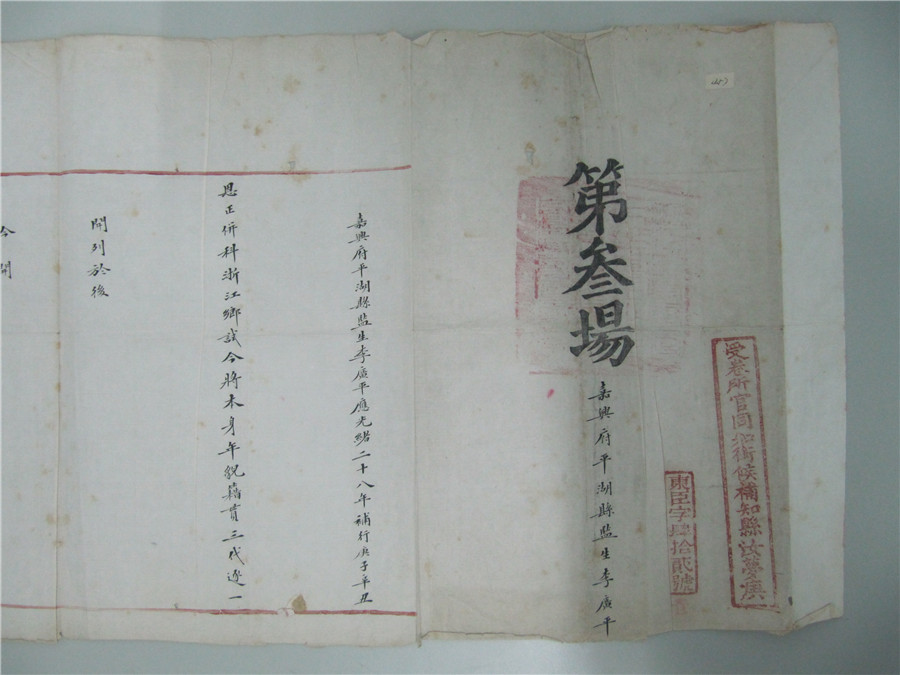 受卷所官同知銜候補知縣汝夢庚
東臣字肆拾貳號
第叁場
嘉興府平湖縣監生李廣平
嘉興府平湖縣監生李廣平應光緒二十八年補行庚子辛丑
恩正併科浙江鄉試今將本身年貌籍貫三代逐一
開列於後
今開